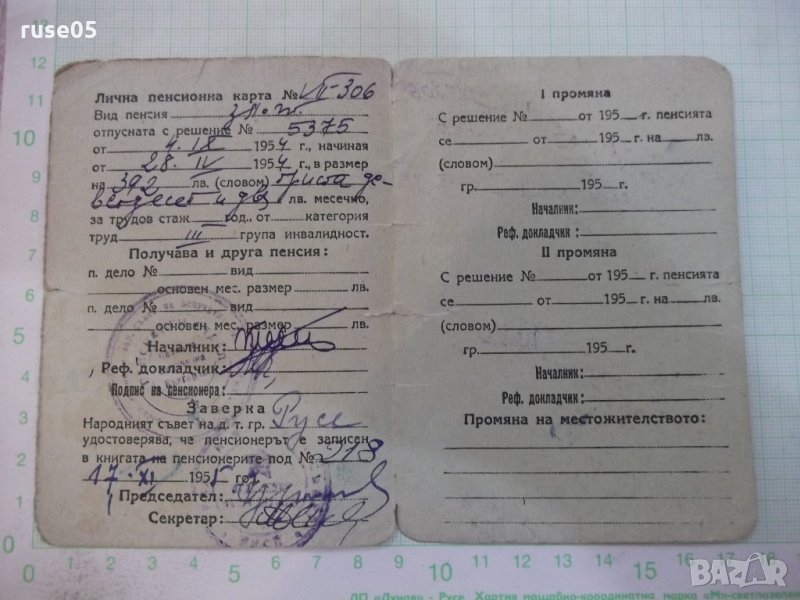 ruse05
Лична пенсионна карта № VII-306
Вид пенсия
отпусната с решение № 5375
от 4. IX 1954 г., начиная
от 28. IV 1954 г., в размер
на 392 лв. (словом) триста де-
ветдесет и два лв. месечно,
за трудов стаж год., от категория
труд III група инвалидност.
Получава и друга пенсия:
п. дело № вид
основен мес. размер лв.
п. дело № вид
основен мес. размер лв.
Началник:
Реф. докладчик:
Подпис на пенсионера:
Заверка
Народният съвет на д. т. гр. Русе
удостоверява, че пенсионерът е записен
в книгата на пенсионерите под № 213
17. XI 1955 год.
Председател:
Секретар:
I промяна
С решение № от 195 г. пенсията
се от 195 г. на лв.
(словом)
гр. 195 г.
Началник:
Реф. докладчик:
II промяна
С решение № от 195 г. пенсията
се от 195 г. на лв.
(словом)
гр. 195 г.
Началник:
Реф. докладчик:
Промяна на местожителството:
ДП „Дунав" - Русе Хартия мащабно-координатна марка
BAZAR